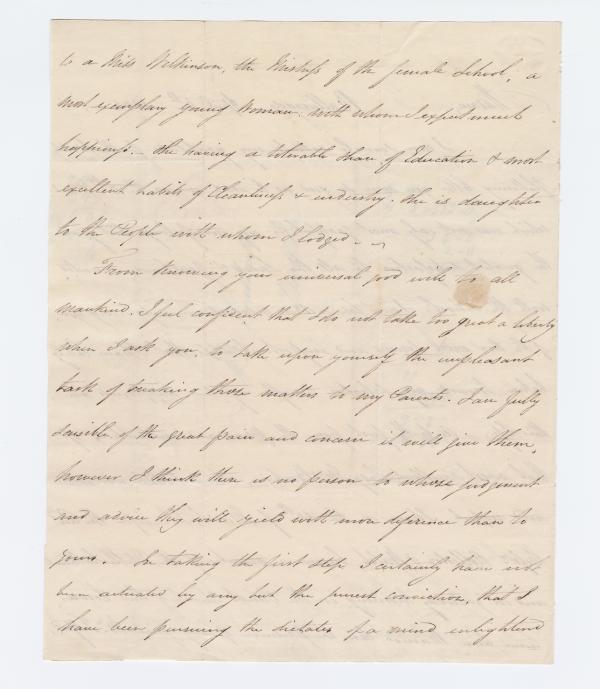 to a Miss Wilkinson, the Mistress of the female School, a
most exemplary young Woman with whom I expect much
happiness. – She having a tolerable share of Education & most
excellent habits of Cleanliness & industry. She is daughter
to the People with whom I lodged. –
From knowing your universal good will to all
mankind. I feel confident that I do not take too great a liberty
when I ask you, to take upon yourself the unpleasant
task of breaking these matters to my Parents. I am fully
sensible of the great pain and concern it will give them,
however I think there is no person to whose judgement
and advice they will yield with more deference than to
yours. In taking the first step I certainly have not
been actuated by any but the purest conviction, that I
have been pursuing the dictates of a mind enlightend